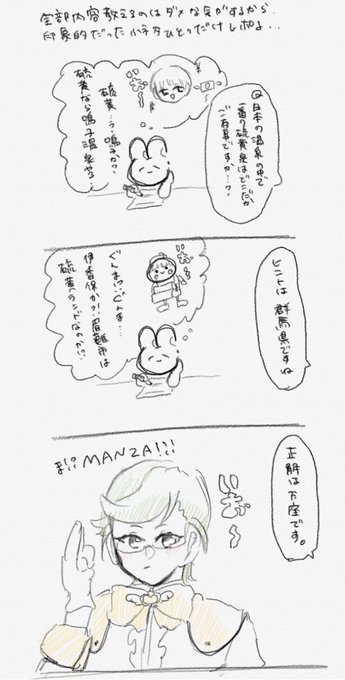 全部内容教えるのはダメな気がするから
印象的だった小ネタひとつだけレポよ…
Q 日本の温泉の中で
一番の硫黄泉はどこだか
ご存事ですか…?
硫黄…?鳴子か?
硫黄なら鳴子温泉やろ…
ヒントは群馬県ですね
ぐんま!?ぐんま…
伊香保か?!眉難市は
硫黄のランドなのか!?
正解は万座です。
ま!?!MANZA!?!